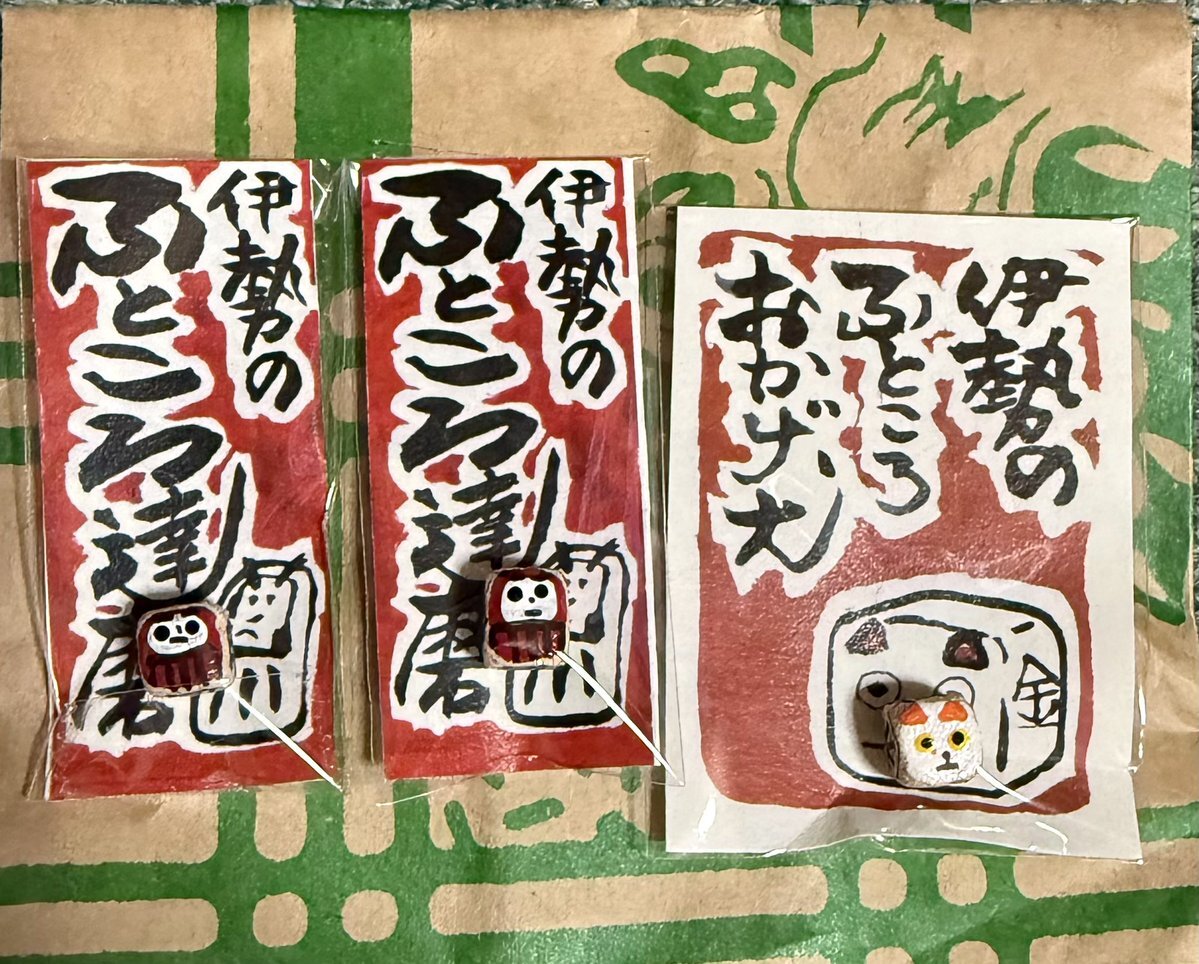 伊勢の
ふところ達磨
伊勢の
ふところ達磨
伊勢の
ふところ
おかげ犬
金